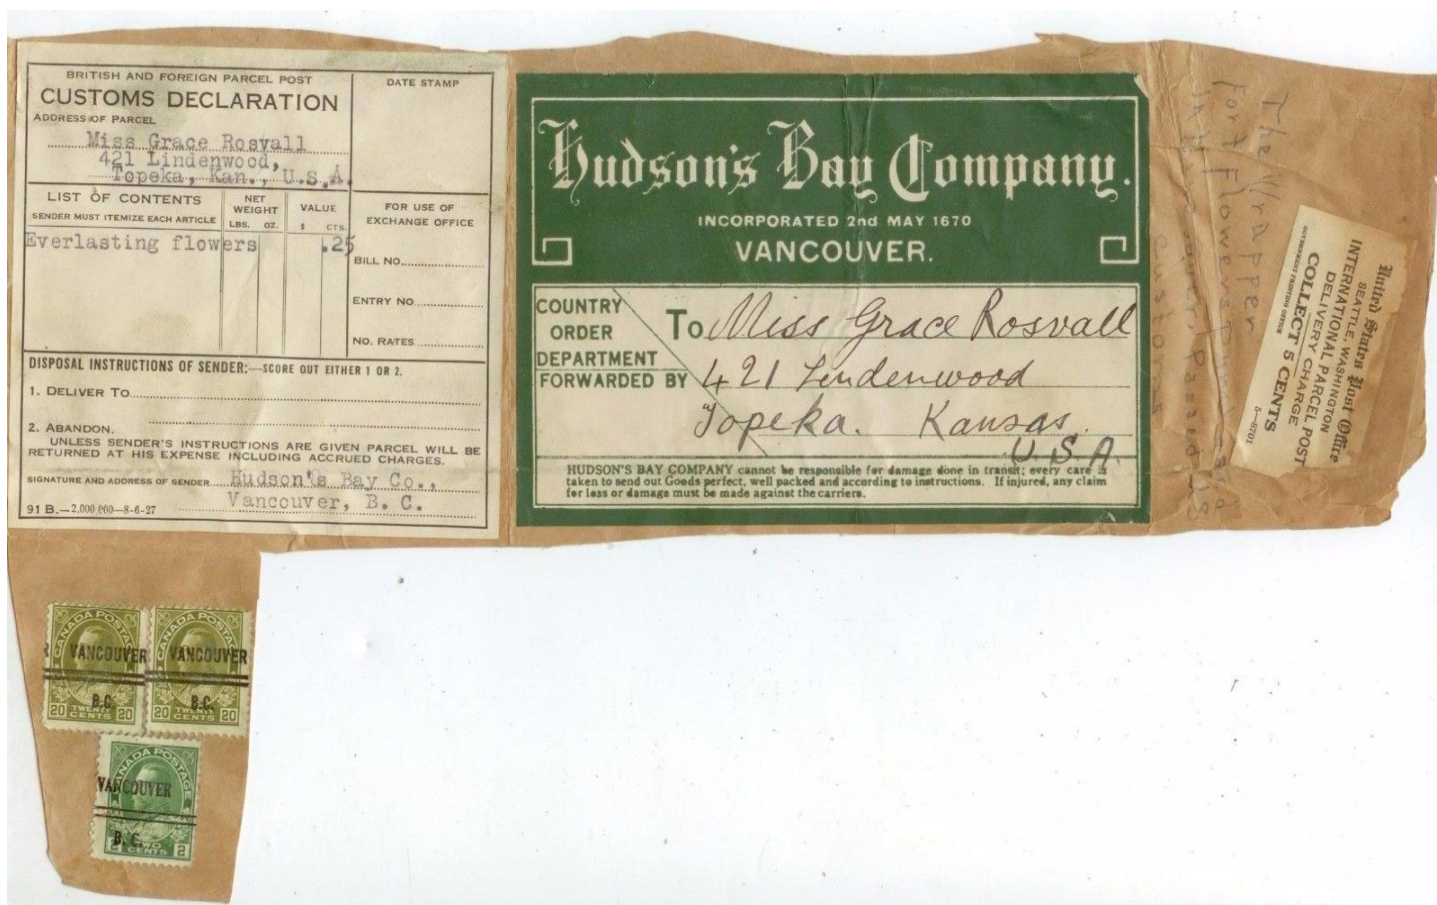 BRITISH AND FOREIGN PARCEL POST
CUSTOMS DECLARATION
ADDRESS OF PARCEL
Miss Grace Rosvall
421 Lindenwood,
Topeka, Kan., U.S.A.
DATE STAMP
LIST OF CONTENTS
SENDER MUST ITEMIZE EACH ARTICLE
NET WEIGHT
LBS. OZ.
VALUE
$ CTS.
FOR USE OF
EXCHANGE OFFICE
Everlasting flowers .25
BILL NO.
ENTRY NO.
NO. RATES
DISPOSAL INSTRUCTIONS OF SENDER:—SCORE OUT EITHER 1 OR 2.
1. DELIVER TO
2. ABANDON.
UNLESS SENDER'S INSTRUCTIONS ARE GIVEN PARCEL WILL BE
RETURNED AT HIS EXPENSE INCLUDING ACCRUED CHARGES.
SIGNATURE AND ADDRESS OF SENDER Hudson's Bay Co.,
Vancouver, B. C.
91 B.—2,000,000—8-6-27
Hudson's Bay Company.
INCORPORATED 2nd MAY 1670
VANCOUVER.
COUNTRY
ORDER
DEPARTMENT
FORWARDED BY
To Miss Grace Rosvall
421 Lindenwood
Topeka. Kansas.
U.S.A.
HUDSON'S BAY COMPANY cannot be responsible for damage done in transit; every care is
taken to send out Goods perfect, well packed and according to instructions. If injured, any claim
for loss or damage must be made against the carriers.
The Wrapper
For Flowers
Passed
Customs
United States Post Office
SEATTLE, WASHINGTON
INTERNATIONAL PARCEL POST
DELIVERY CHARGE
COLLECT 5 CENTS
GOVERNMENT PRINTING OFFICE 5—8701
CANADA POSTAGE
VANCOUVER
B.C.
20 TWENTY CENTS 20
CANADA POSTAGE
VANCOUVER
B.C.
20 TWENTY CENTS 20
CANADA POSTAGE
VANCOUVER
B.C.
2 TWO CENTS 2